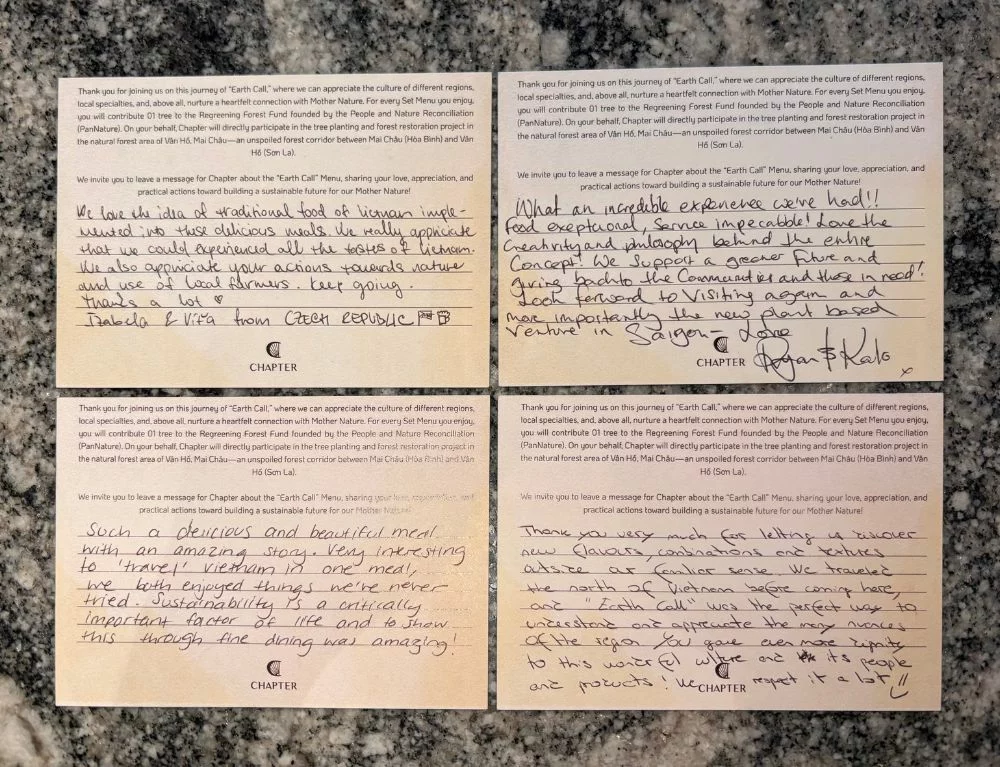 Thank you for joining us on this journey of "Earth Call," where we can appreciate the culture of different regions,
local specialties, and, above all, nurture a heartfelt connection with Mother Nature. For every Set Menu you enjoy,
you will contribute 01 tree to the Regreening Forest Fund founded by the People and Nature Reconciliation
(PanNature). On your behalf, Chapter will directly participate in the tree planting and forest restoration project in
the natural forest area of Vân Hồ, Mai Châu—an unspoiled forest corridor between Mai Châu (Hòa Bình) and Vân
Hồ (Sơn La).
We invite you to leave a message for Chapter about the "Earth Call" Menu, sharing your love, appreciation, and
practical actions toward building a sustainable future for our Mother Nature!
We love the idea of traditional food of Vietnam imple-
mented into these delicious meals. We really appriciate
that we could experienced all the tastes of Vietnam.
We also appriciate your actions towards nature
and use of local farmers. Keep going.
Thanks a lot ♥
Izabela & Víťa from CZECH REPUBLIC
CHAPTER
Thank you for joining us on this journey of "Earth Call," where we can appreciate the culture of different regions,
local specialties, and, above all, nurture a heartfelt connection with Mother Nature. For every Set Menu you enjoy,
you will contribute 01 tree to the Regreening Forest Fund founded by the People and Nature Reconciliation
(PanNature). On your behalf, Chapter will directly participate in the tree planting and forest restoration project in
the natural forest area of Vân Hồ, Mai Châu—an unspoiled forest corridor between Mai Châu (Hòa Bình) and Vân
Hồ (Sơn La).
We invite you to leave a message for Chapter about the "Earth Call" Menu, sharing your love, appreciation, and
practical actions toward building a sustainable future for our Mother Nature!
What an incredible experience we've had!!
Food exeptional, Service impecable! Love the
Creativity and philosophy behind the entire
Concept! We Support a greener future and
giving back to the Communities and those in need!
Look forward to Visiting again and
more importantly the new plant based
Venture in Saigon - Love
CHAPTER
& Kate
x
Thank you for joining us on this journey of "Earth Call," where we can appreciate the culture of different regions,
local specialties, and, above all, nurture a heartfelt connection with Mother Nature. For every Set Menu you enjoy,
you will contribute 01 tree to the Regreening Forest Fund founded by the People and Nature Reconciliation
(PanNature). On your behalf, Chapter will directly participate in the tree planting and forest restoration project in
the natural forest area of Vân Hồ, Mai Châu—an unspoiled forest corridor between Mai Châu (Hòa Bình) and Vân
Hồ (Sơn La).
We invite you to leave a message for Chapter about the "Earth Call" Menu, sharing your love, appreciation, and
practical actions toward building a sustainable future for our Mother Nature!
Such a delicious and beautiful meal
with an amazing story. Very interesting
to 'travel' Vietnam in one meal,
we both enjoyed things we've never
tried. Sustainability is a critically
important factor of life and to show
this through fine dining was amazing!
CHAPTER
Thank you for joining us on this journey of "Earth Call," where we can appreciate the culture of different regions,
local specialties, and, above all, nurture a heartfelt connection with Mother Nature. For every Set Menu you enjoy,
you will contribute 01 tree to the Regreening Forest Fund founded by the People and Nature Reconciliation
(PanNature). On your behalf, Chapter will directly participate in the tree planting and forest restoration project in
the natural forest area of Vân Hồ, Mai Châu—an unspoiled forest corridor between Mai Châu (Hòa Bình) and Vân
Hồ (Sơn La).
We invite you to leave a message for Chapter about the "Earth Call" Menu, sharing your love, appreciation, and
practical actions toward building a sustainable future for our Mother Nature!
Thank you very much for letting us discover
new flavours, combinations and textures
outside our familiar sense. We traveled
the north of Vietnam before coming here,
and "Earth Call" was the perfect way to
understand and appreciate the many nuances
of the region. You gave even more dignity
to this wonderful culture and its people
and products! We respect it a lot!!
CHAPTER